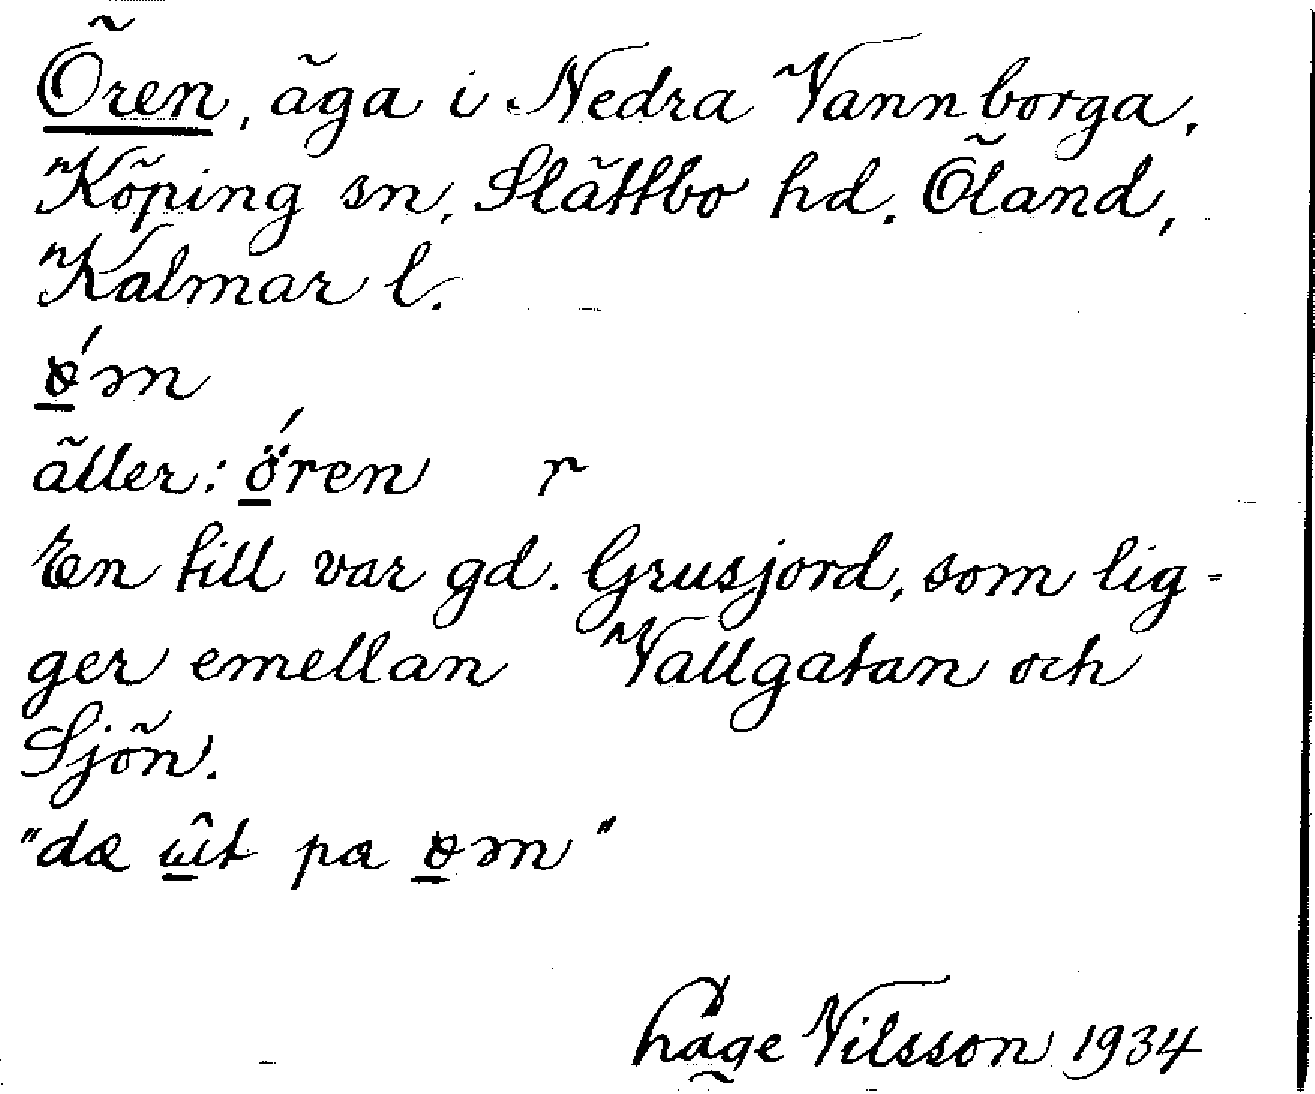 Ören, äga i Nedra Vannborga,
Köping sn, Slättbo hd. Öland,
Kalmar l.
äller: ören r
En till var gd. Grusjord, som lig-
ger emellan Vallgatan och
Sjön.
"dæ ût pa
Nilsson 1934